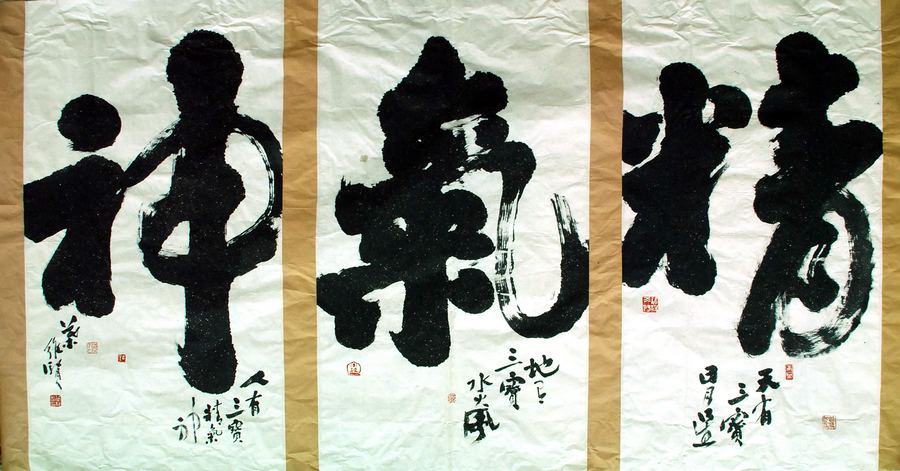 精
天有
三寶
日月星
氣
地有
三寶
水火風
神
人有
三寶
精氣
神